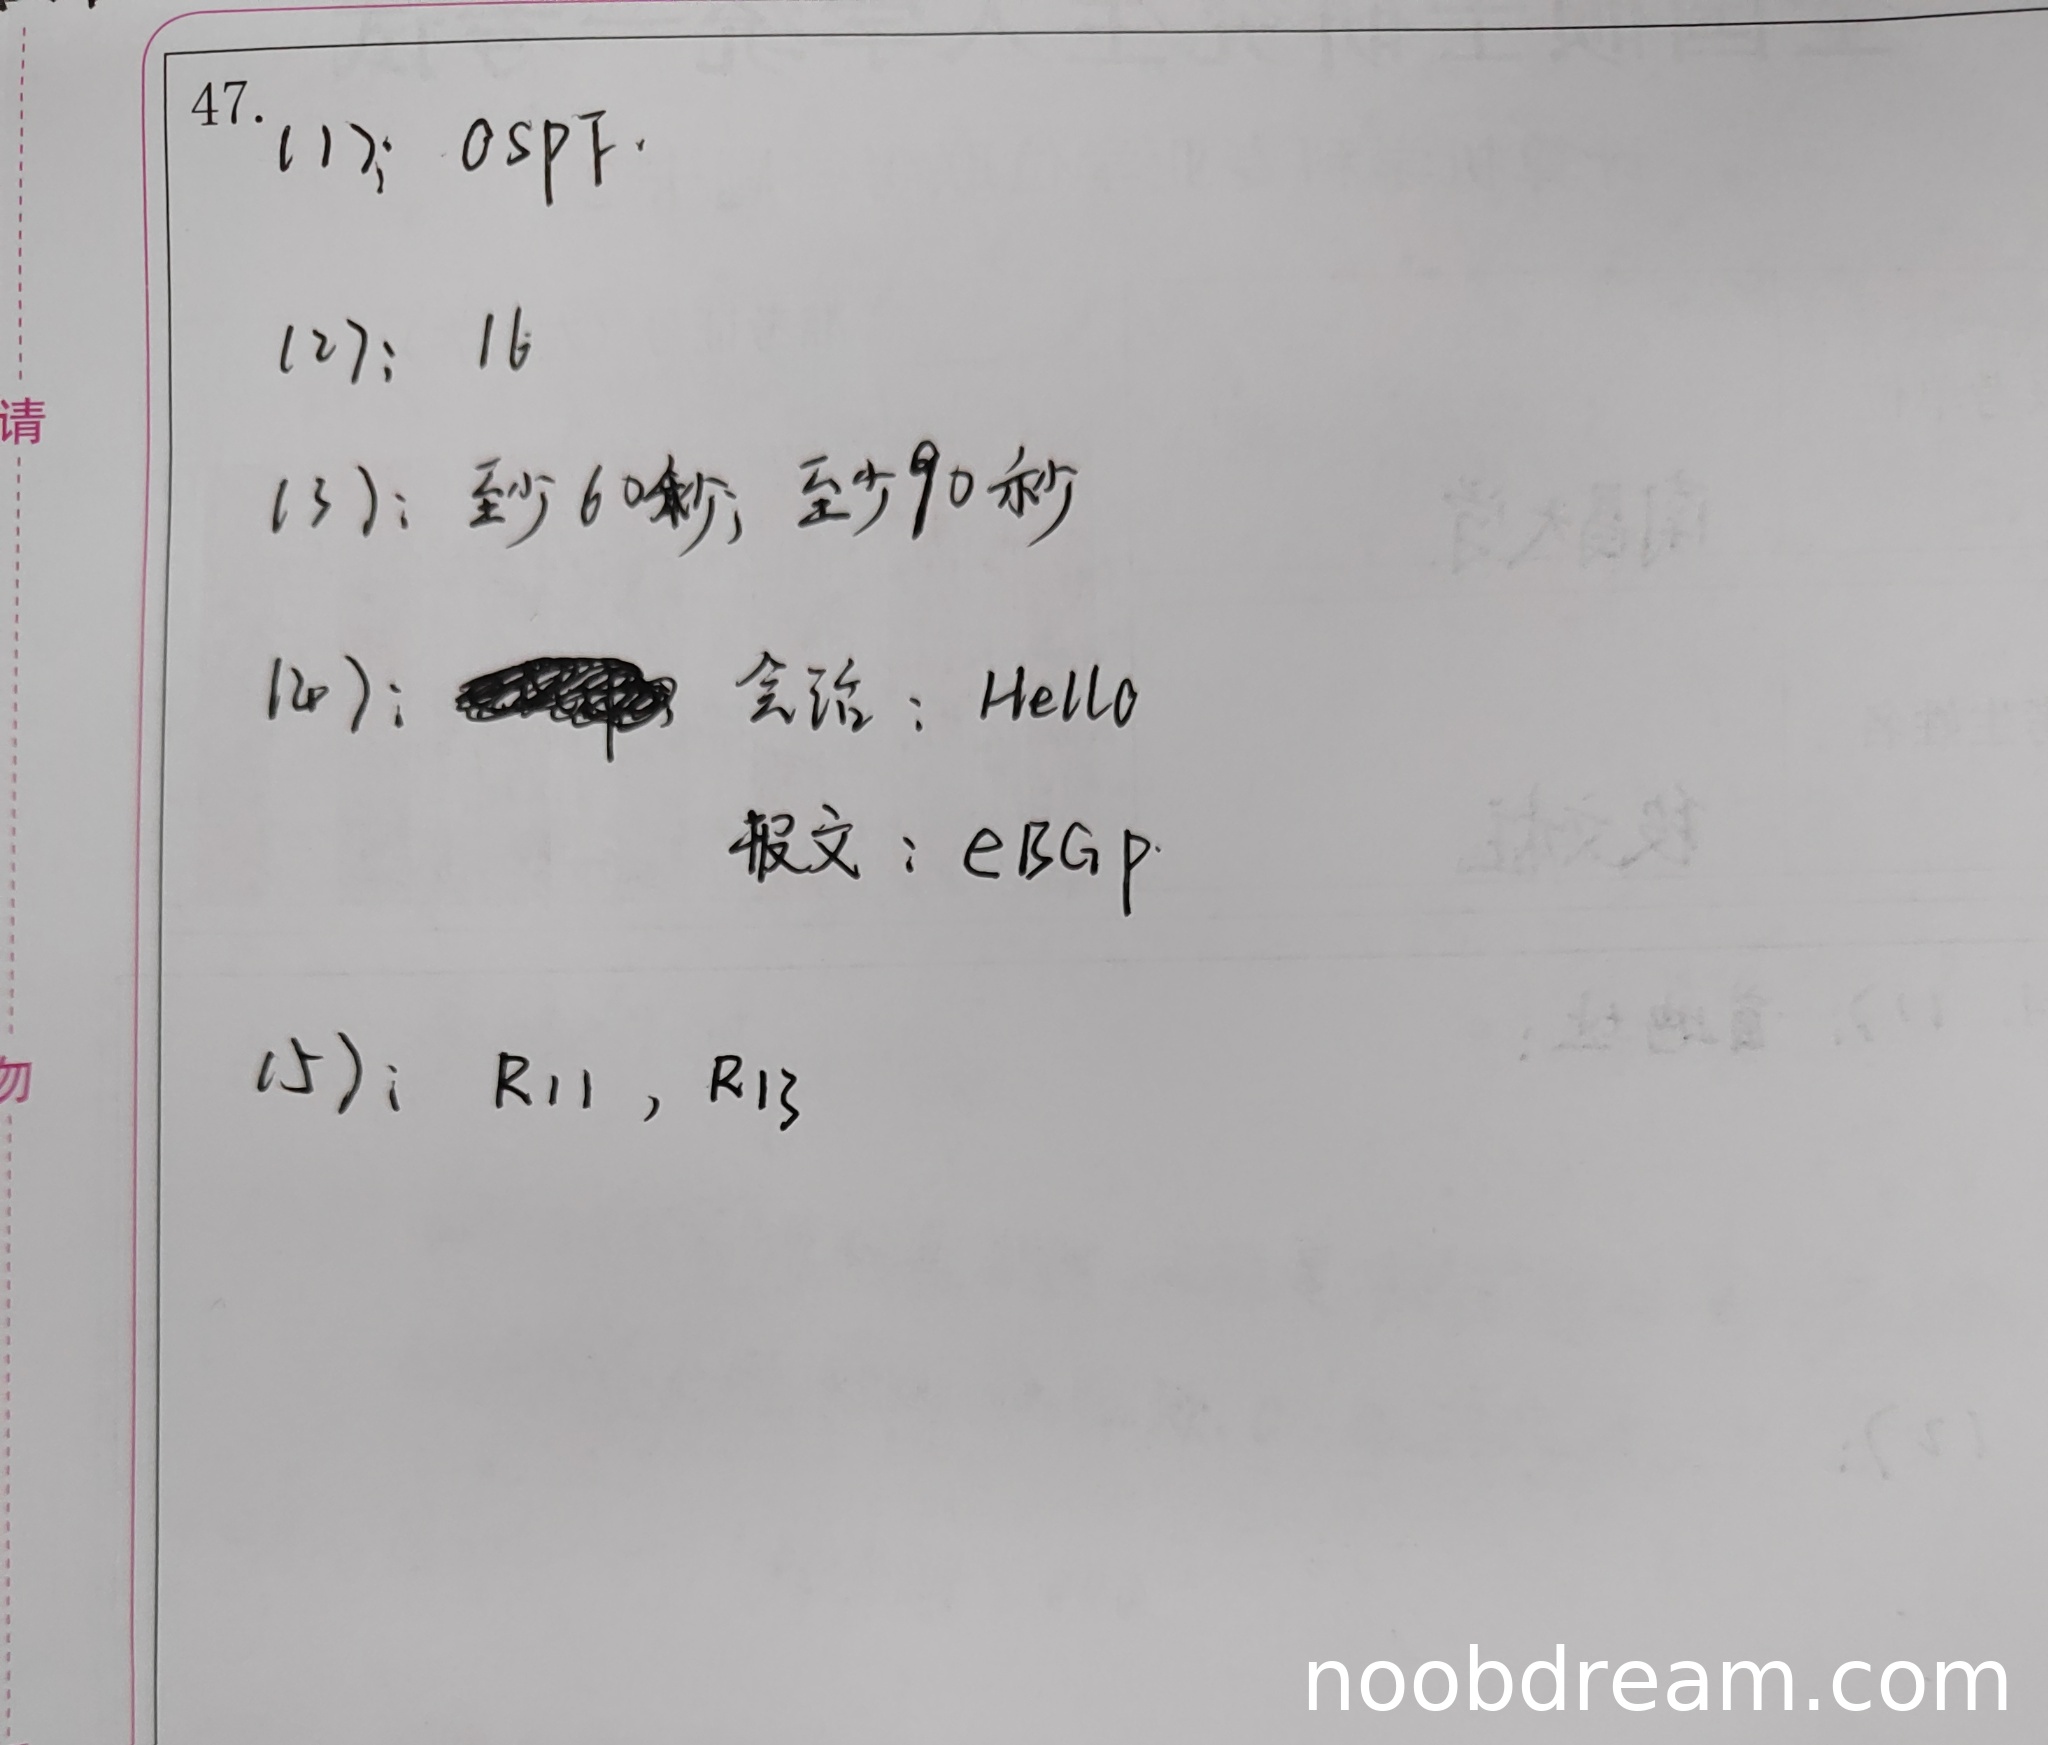 47.
(1): OSPF.
(2): 16
(3): 至少60秒; 至少90秒
(4): 会话: Hello
报文: eBGP.
(5): R11, R13
请
勿
noobdream.com